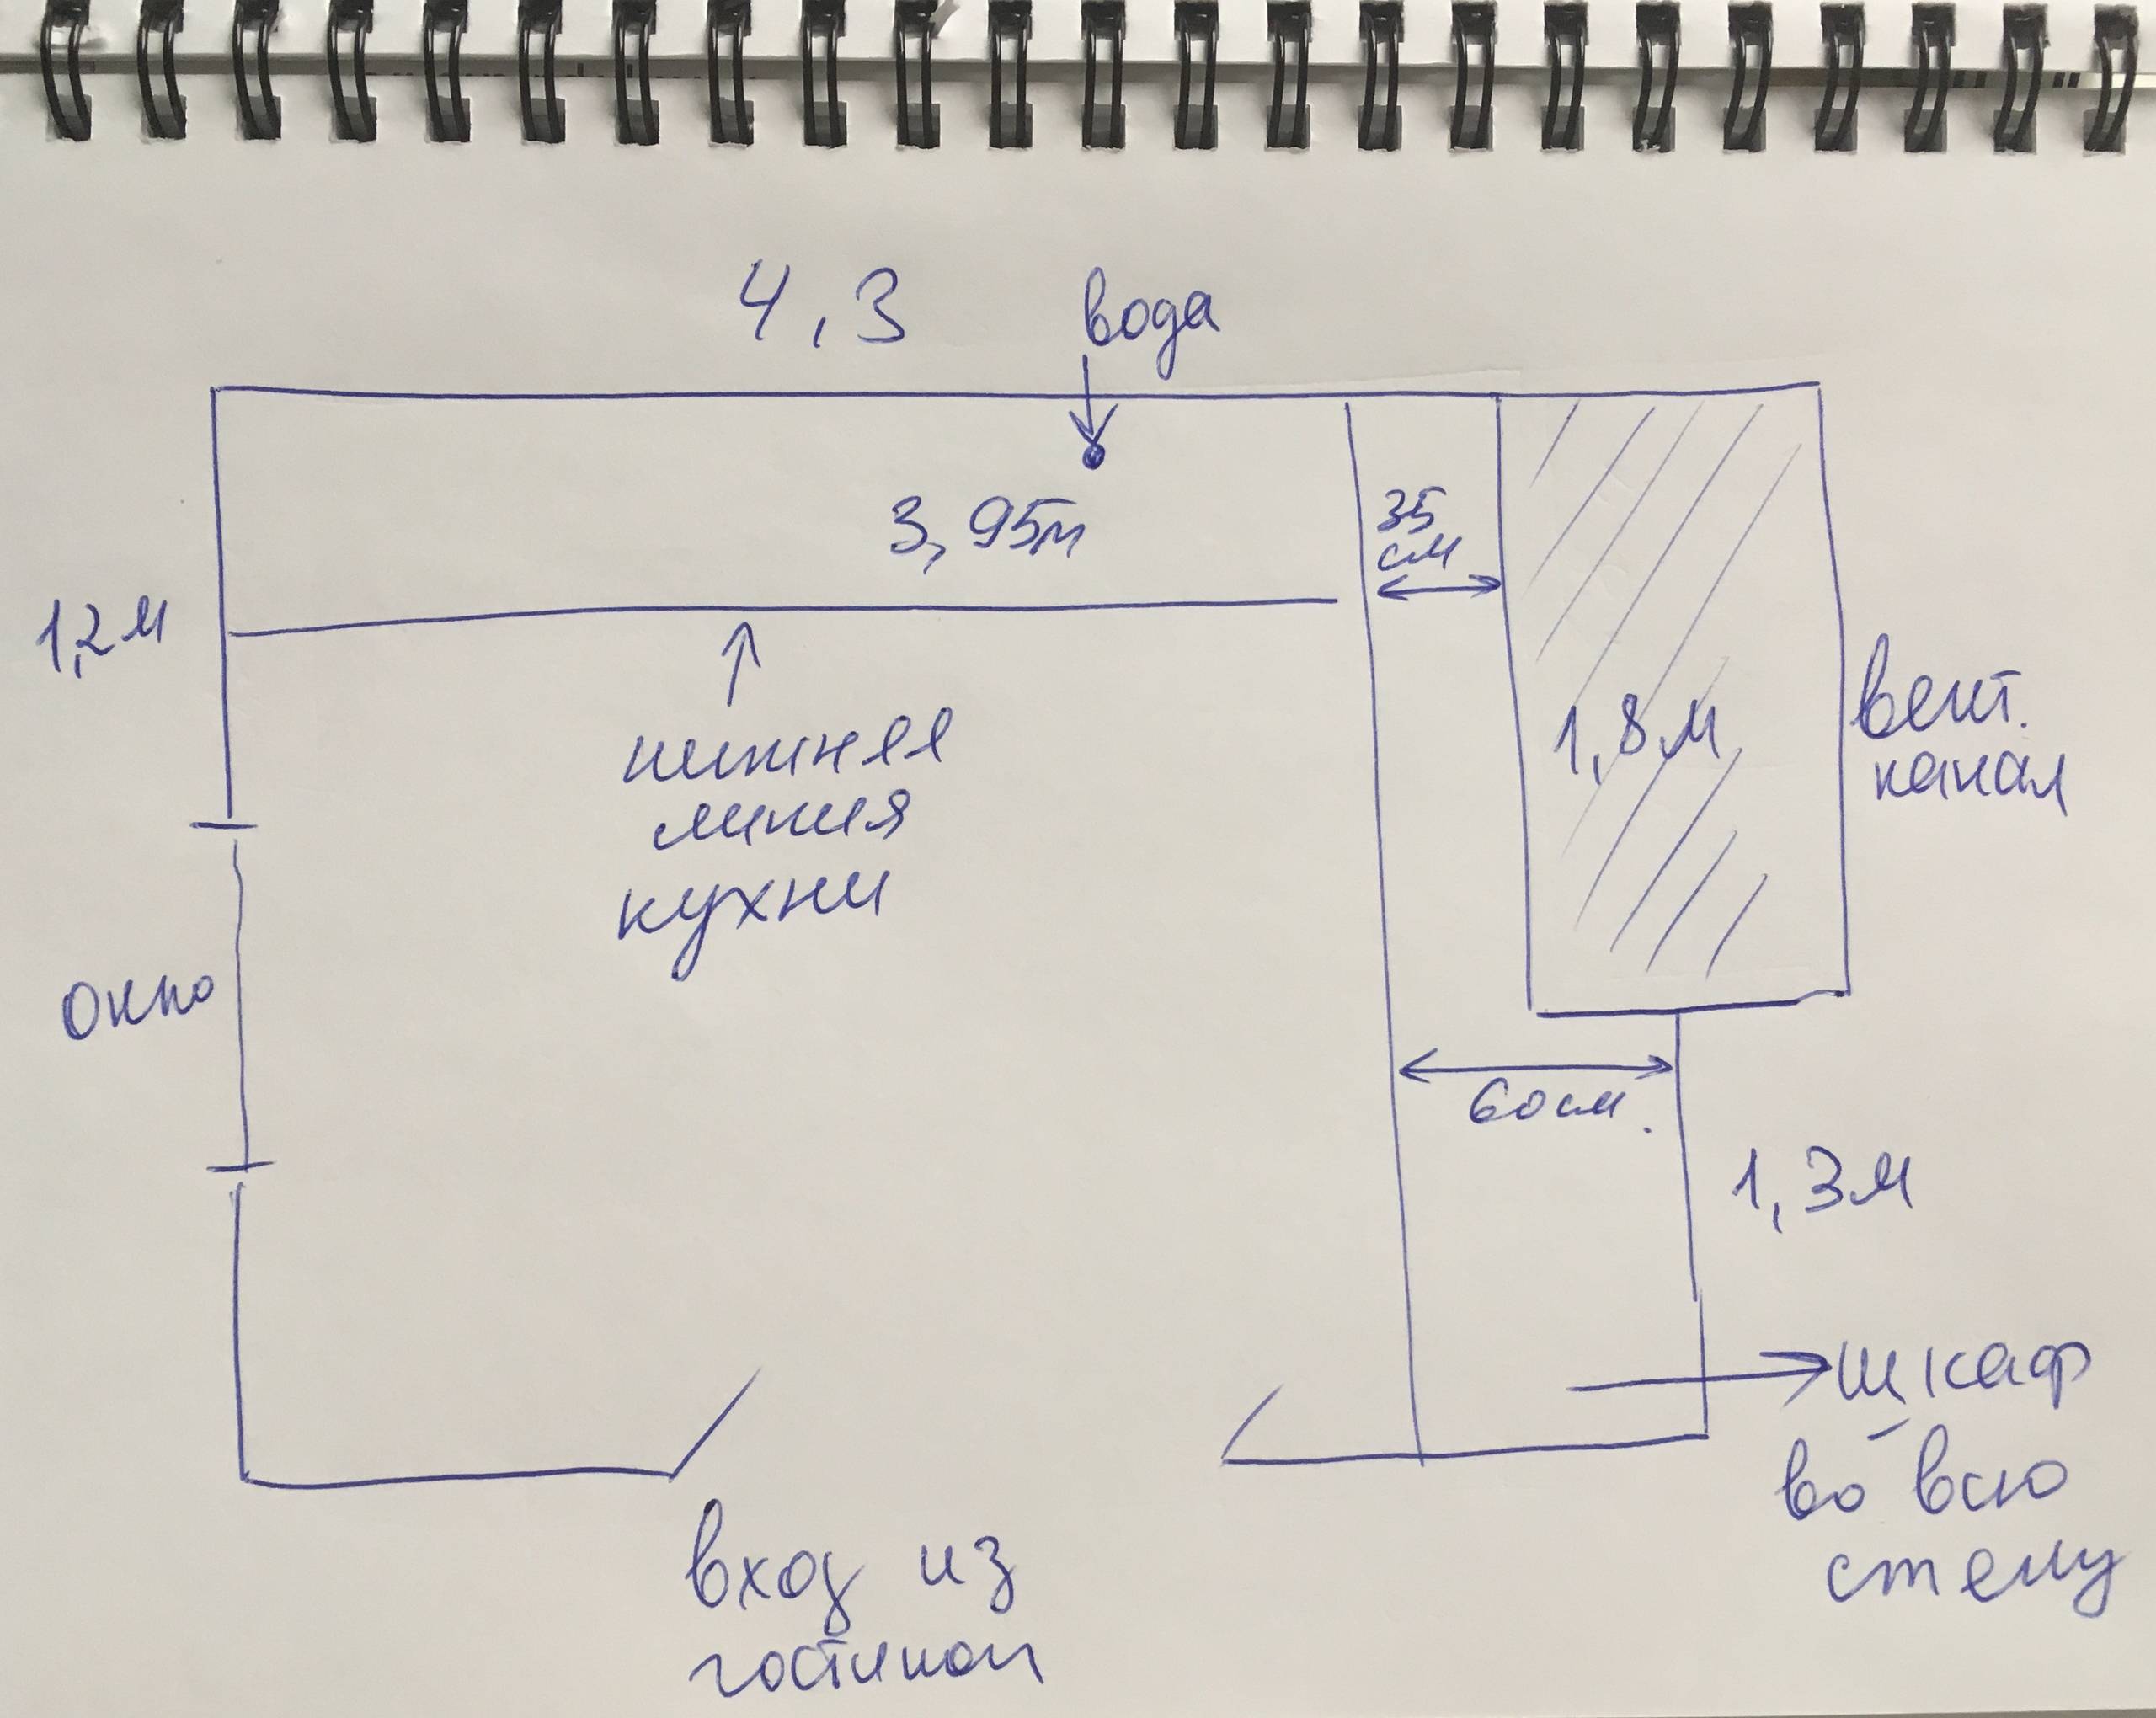 4,3
вода
3,95м
35
см
1,2м
нижняя
линия
кухни
1,8м
вент.
канал
окно
60см.
1,3м
шкаф
во всю
стену
вход из
гостиной